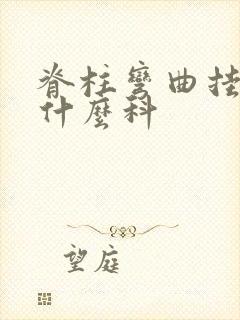 脊柱彎曲挂
什麼科
望庭